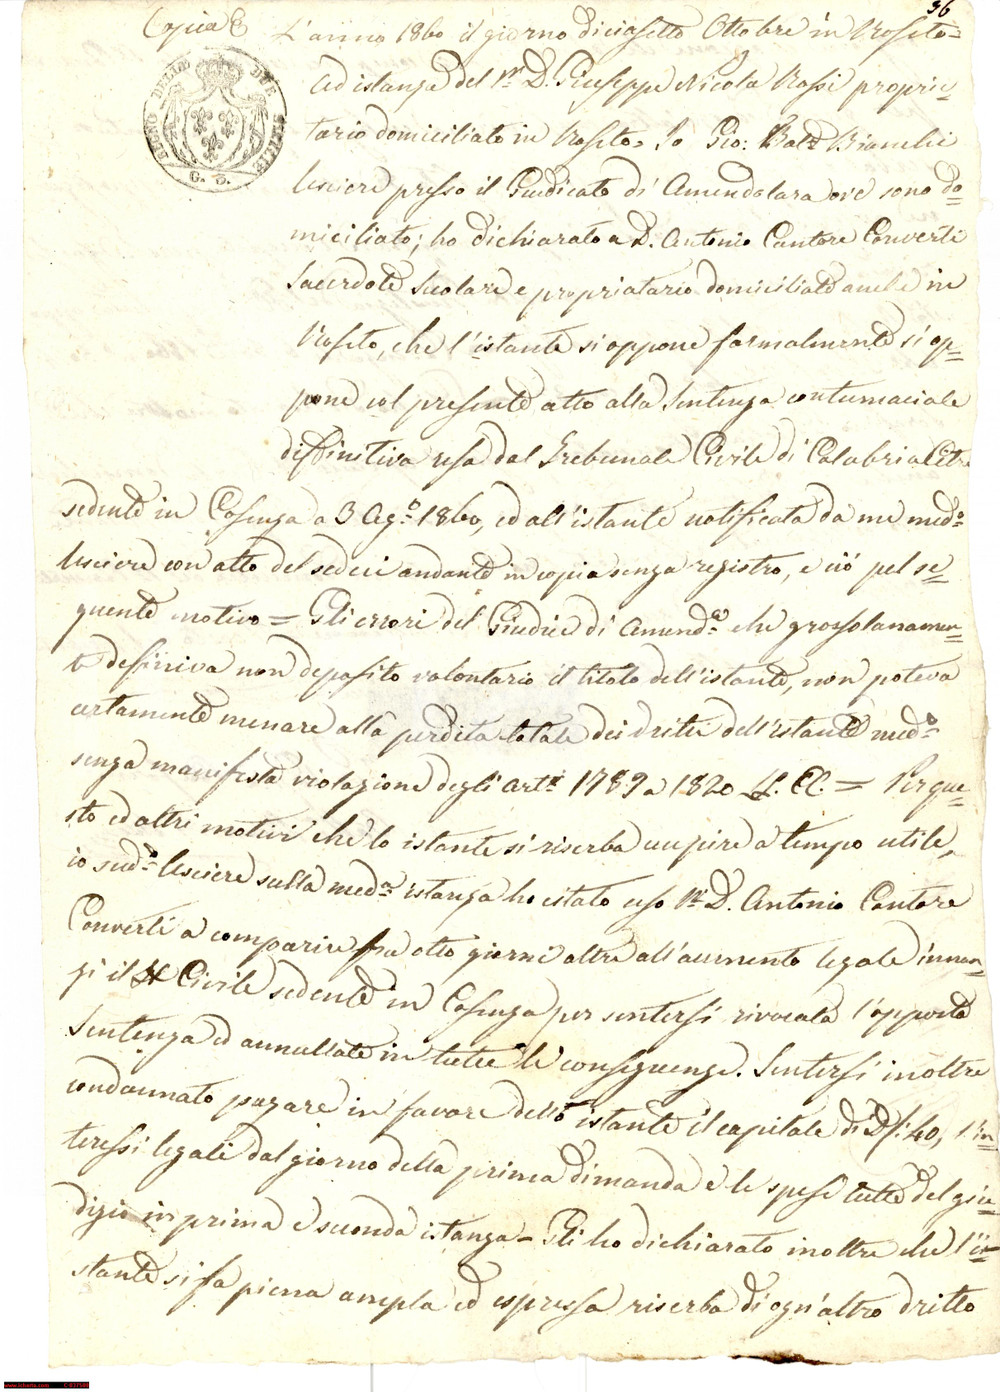 36
Copia L'anno 1860 il giorno diciasette Ottobre in Roseto =
Ad istanza del Sr. D. Giuseppe Nicola Rossi proprie=
tario domiciliato in Roseto = Io Gio: Batt Bianchi
Usciere presso il Giudicato di Amendolara ove sono do=
miciliato; ho dichiarato a D. Antonio Cantore Converti
Sacerdote Secolare e propriatario domiciliato anche in
Roseto, che l'istante si oppone formalmente si op=
pone col presente atto alla Sentenza contumaciale
diffinitiva resa dal Trebunale Civile di Calabria Citra
sedente in Cosenza a 3 Ago. 1860, ed all'istante notificata da me medo.
Usciere con atto del sedeci andante in copia senza registro, e ciò pel se=
guente motivo = Gli errori del Giudice di Amenda. che grossolanamen=
te definiva non deposito volontario il titolo dell'istante, non poteva
certamente menare alla perdita totale dei dritti dell'istante medo.
senza manifesta violazione degli arti. 1789 a 1820 LL. CC. = Per que=
sto ed altri motivi che lo istante si riserba aumpire a tempo utile,
io sudo. Usciere sulla meda. istanza ho citato esso Sr. D. Antonio Cantore
Converti a comparire fra otto giorni oltre all'aumento legale innan=
zi il Civile sedente in Cosenza per sentersi rivocata l'opposta
Sentenza ed annullate in tutte le conseguenze. Sentersi inoltre
condannato pagare in favore dello istante il capitale di D.ti 40, l'in=
teressi legali dal giorno della prima dimanda e le spese tutte del giu=
dizio in prima e seconda istanza = Gli ho dichiarato inoltre che l'in=
stante si fa piena ampla ed espressa riserba di ogn'altro dritto
REGNO DELLE DUE SICILIE
G. 6.